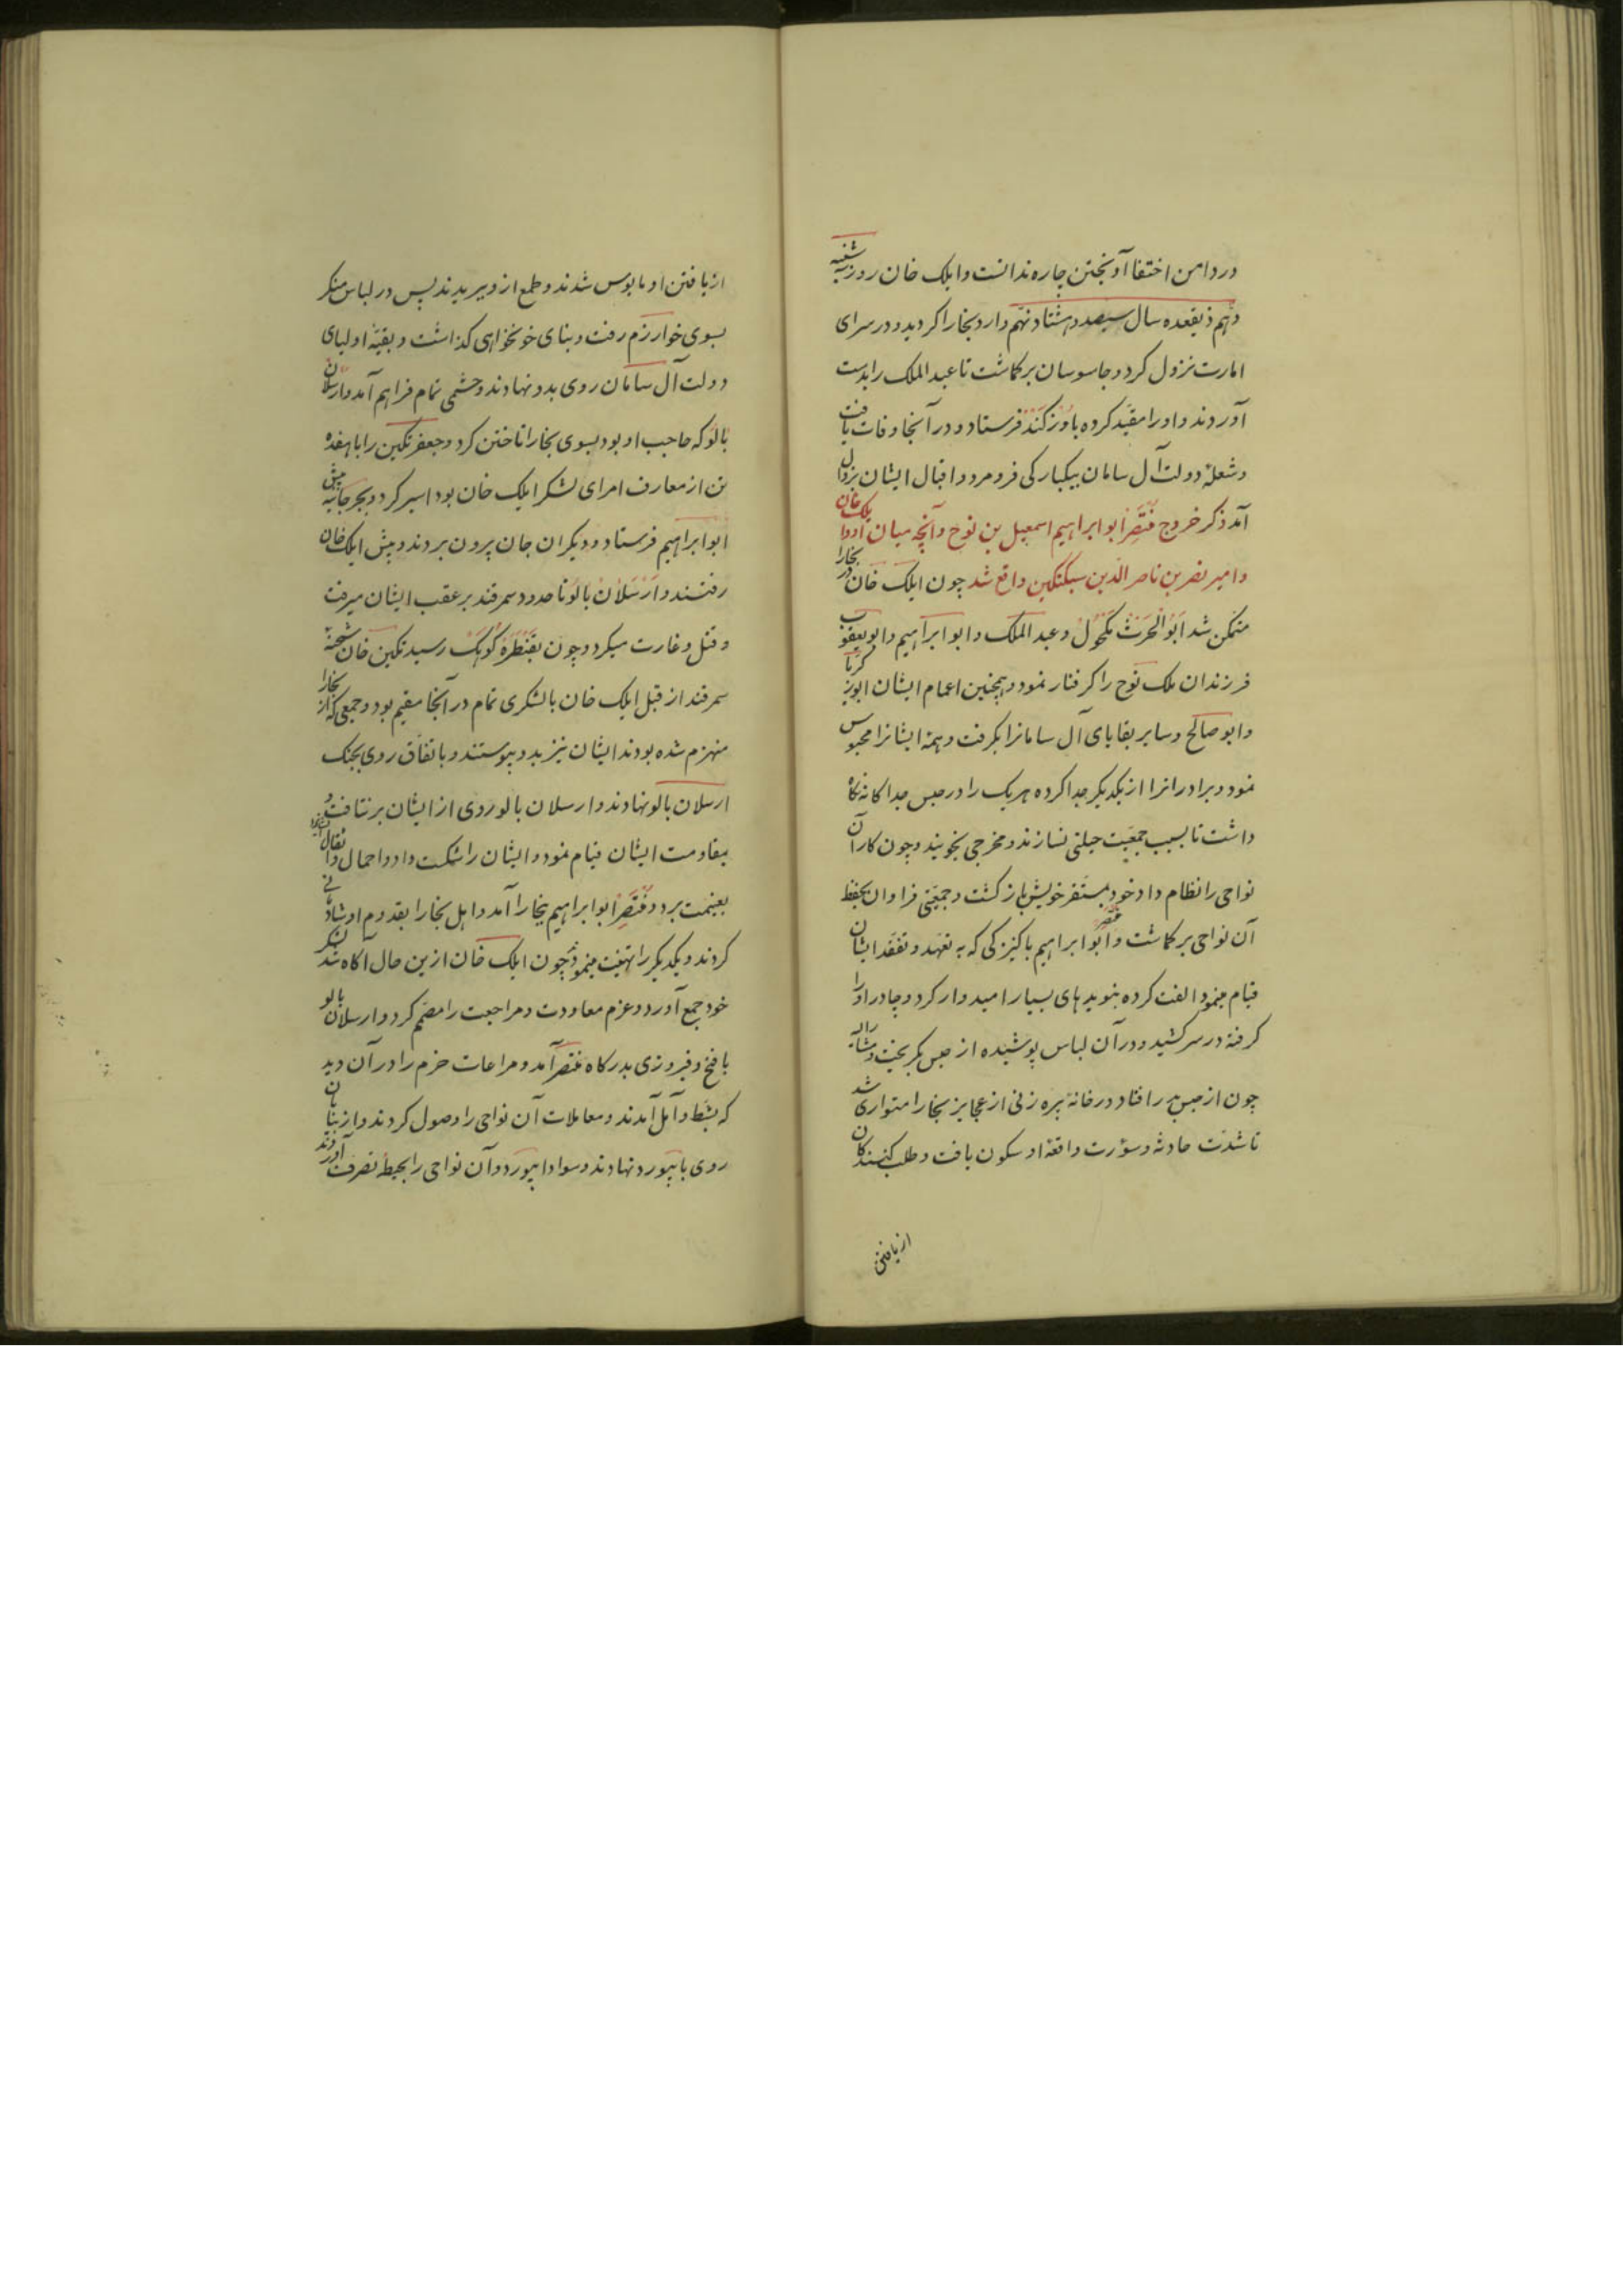 در دامن اختفا آویختن چاره ندانست و ایلک خان روز سه شنبه
دهم ذیقعده سال سیصد و هشتاد و نهم وارد بخارا گردید و در سرای
امارت نزول کرد و جاسوسان برگماشت تا عبد الملک را بدست
آوردند و او را مقید کرده باوزکند فرستاد و در آنجا وفات یافت
و شعلهٔ دولت آل سامان بیکبارگی فرو مرد و اقبال ایشان بزوال
آمد ذکر خروج منتصر ابو ابراهیم اسمعیل بن نوح و آنچه میان او و ایلک خان
و امیر نصر بن ناصر الدین سبکتگین واقع شد چون ایلک خان در بخارا
متمکن شد ابو الحرث مکحول و عبد الملک و ابو ابراهیم و ابو یعقوب
فرزندان ملک نوح را گرفتار نمود و همچنین اعمام ایشان ابو زکریا
و ابو صالح و سایر بقایای آل سامانرا بگرفت و همهٔ ایشانرا محبوس
نمود و برادرانرا از یکدیگر جدا کرده هر یک را در حبس جداگانه نگاه
داشت تا بسبب جمعیت حیلتی نسازند و مخرجی نجویند و چون کار آن
نواحی را نظام داد خود بمستقر خویش باز گشت و جمعیتی فراوان بحفظ
آن نواحی برگماشت و منتصر ابو ابراهیم با کنیزکی که به تعهد و تفقد ایشان
قیام مینمود الفت کرده بنویدهای بسیار امیدوار کرد و چادر او را
گرفته در سر کشید و در آن لباس پوشیده از حبس بگریخت
چون از حبس بدر افتاد در خانهٔ پیره زنی از عجایز بخارا متواری شد
تا شدت حادثه و سورت واقعهٔ او سکون یافت و طلب کنندگان
از یافتن
از یافتن او مایوس شدند و طمع از وی ببریدند پس در لباس منکر
بسوی خوارزم رفت و بنای خونخواهی گذاشت و بقیهٔ اولیای
دولت آل سامان روی بدو نهادند و حشمی تمام فراهم آمد و ارسلان
بالو که حاجب او بود بسوی بخارا تاختن کرد و جعفر تگین را با هفده
تن از معارف امرای لشکر ایلک خان بود اسیر کرد و بجرجانیه پیش
ابو ابراهیم فرستاد و دیگران جان بیرون بردند و پیش ایلک خان
رفتند و ارسلان بالو تا حدود سمرقند بر عقب ایشان میرفت
و قتل و غارت میکرد و چون بقنطرهٔ کوهک رسید تگین خان شحنهٔ
سمرقند از قبل ایلک خان با لشکری تمام در آنجا مقیم بود و جمعی که از بخارا
منهزم شده بودند ایشان نیز بدو پیوستند و باتفاق روی بجنگ
ارسلان بالو نهادند و ارسلان بالو روی از ایشان برنتافت و
بمقاومت ایشان قیام نمود و ایشان را شکست داد و احمال و اثقال
بغنیمت برد و منتصر ابو ابراهیم ببخارا آمد و اهل بخارا بقدوم او شادمانی
کردند و یکدیگر را تهنیت مینمودند چون ایلک خان ازین حال آگاه شد لشکر
خود جمع آورد و عزم معاودت و مراجعت را مصمم کرد و ارسلان بالو
با فتح و فیروزی بدرگاه منتصر آمد و مراعات حزم را در آن دید
که بشط و آمل آمدند و معاملات آن نواحی را وصول کردند و از بیابان
روی بابیورد نهادند و سواد ابیورد و آن نواحی را بحیطهٔ تصرف آوردند